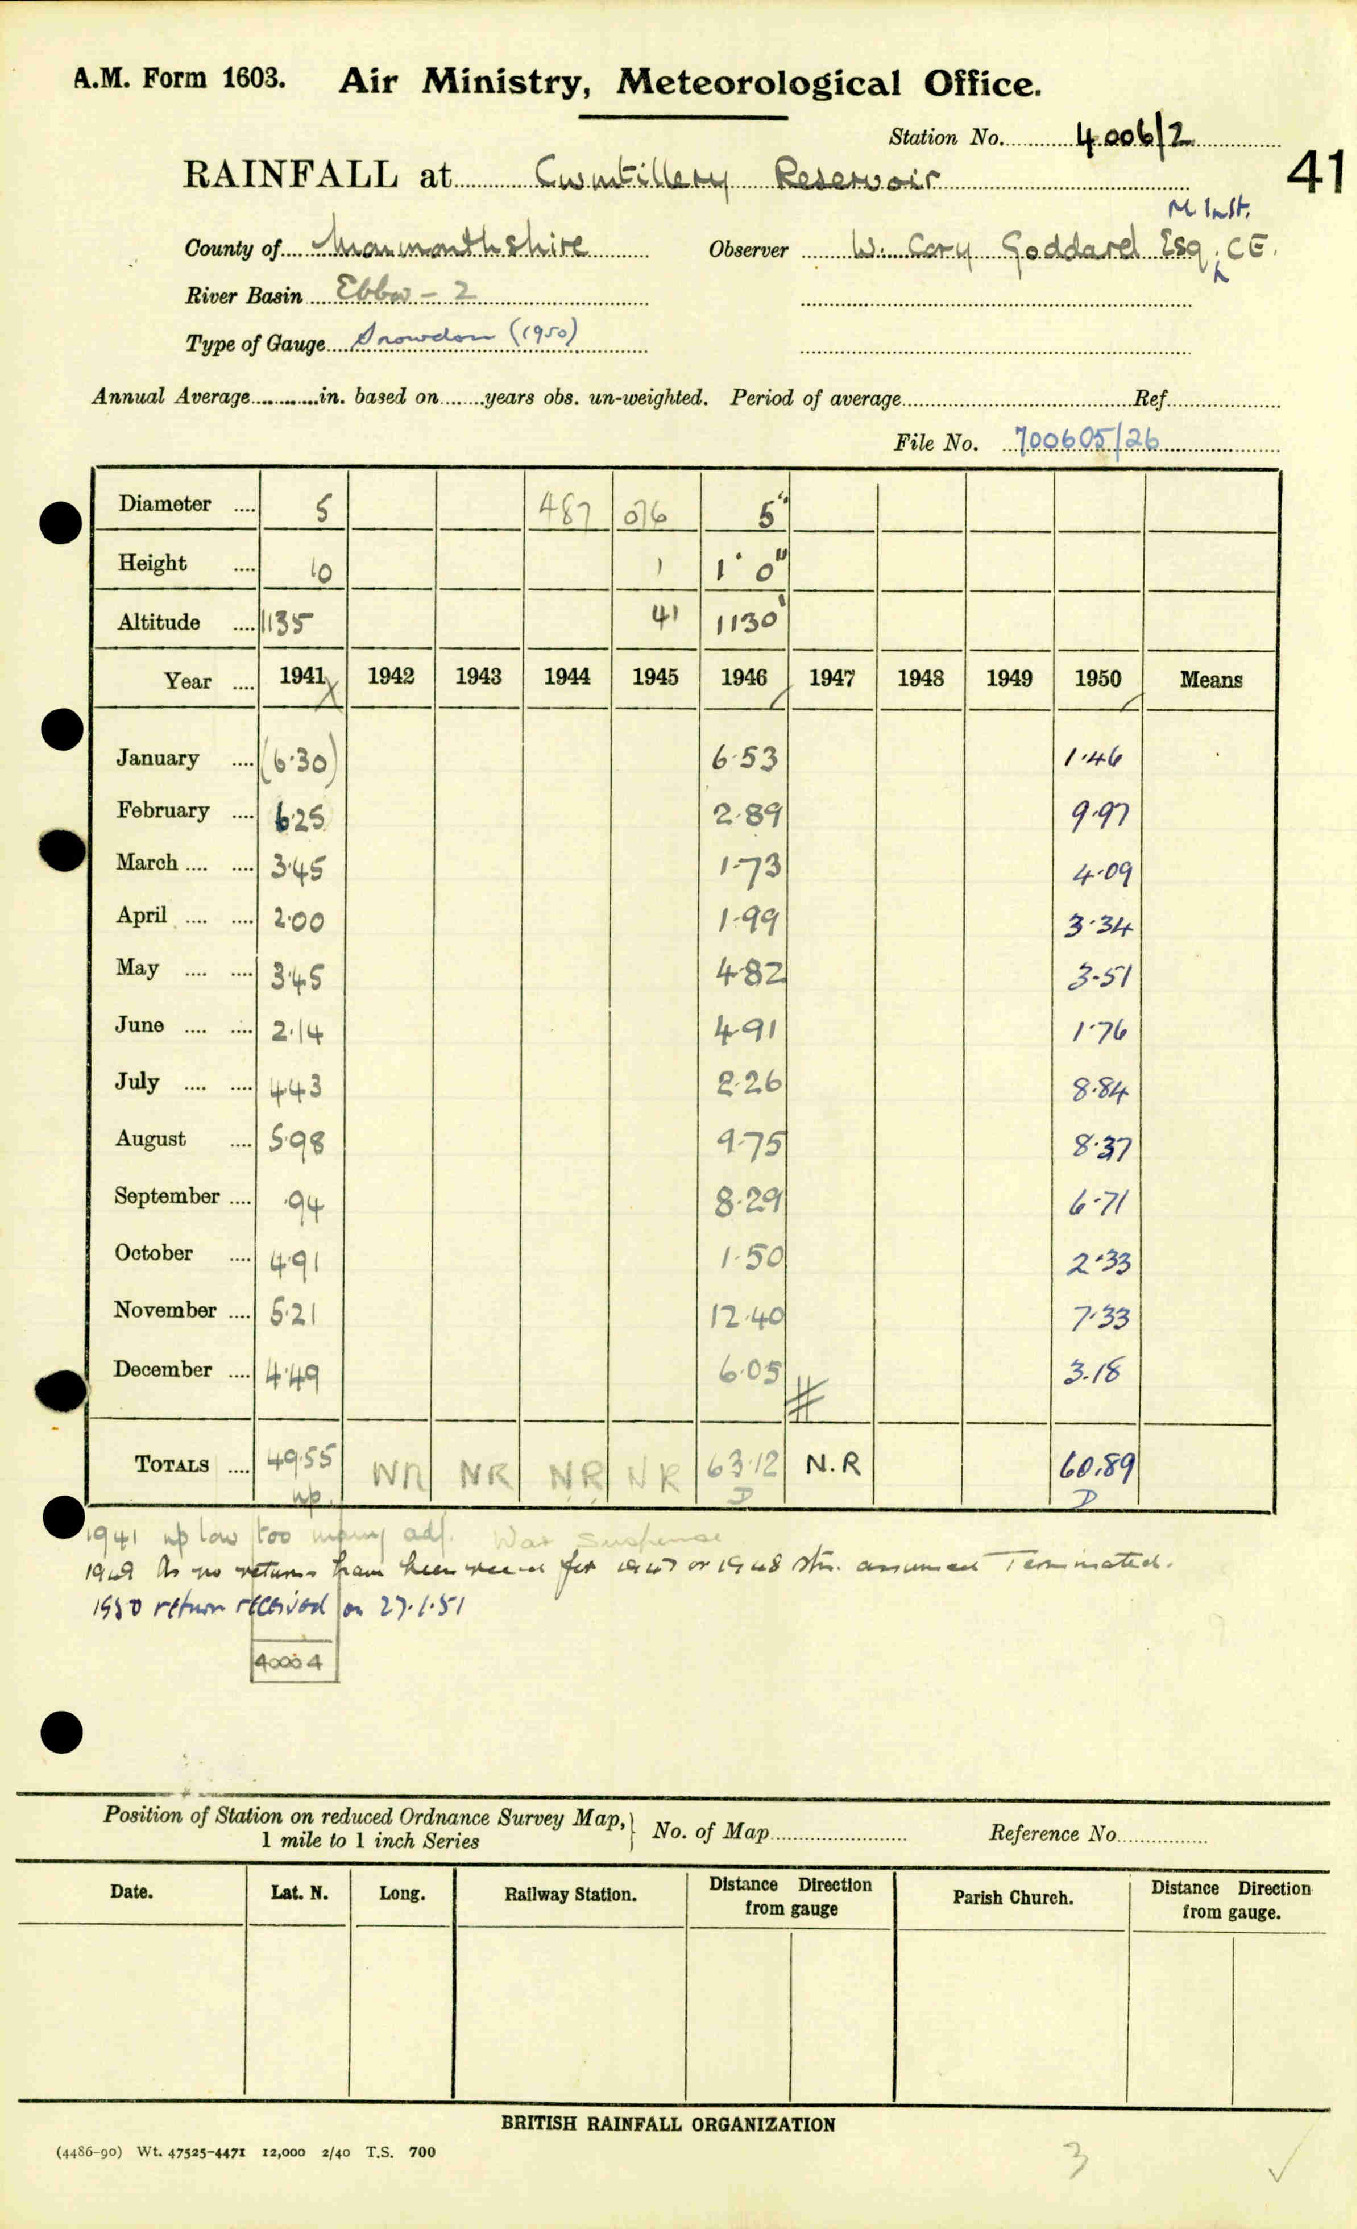 A.M. Form 1603. Air Ministry, Meteorological Office.
Station No. 4006/2
41
RAINFALL at Cwmtillery Reservoir
M Inst.
County of Monmouthshire Observer W. Cory Goddard Esq, CE.
River Basin Ebbw - 2
Type of Gauge Snowdon (1950)
Annual Average in. based on years obs. un-weighted. Period of average Ref
File No. 700605/26
Diameter 5 487 076 5"
Height 10 1 1' 0"
Altitude 1135 41 1130'
Year 1941 X 1942 1943 1944 1945 1946 / 1947 1948 1949 1950 / Means
January (6·30) 6·53 1·46
February 6·25 2·89 9·97
March 3·45 1·73 4·09
April 2·00 1·99 3·34
May 3·45 4·82 3·51
June 2·14 4·91 1·76
July 4·43 2·26 8·84
August 5·98 9·75 8·37
September ·94 8·29 6·71
October 4·91 1·50 2·33
November 5·21 12·40 7·33
December 4·49 6·05 3·18
TOTALS 49·55 NR NR NR NR 63·12 N.R 60·89
np. D D
1941 np low too many adj. War suspense
1949 As no returns have been recd for 1947 or 1948 stn. assumed Terminated.
1950 return received on 27.1.51
40004
Position of Station on reduced Ordnance Survey Map, } No. of Map Reference No.
1 mile to 1 inch Series
Date. Lat. N. Long. Railway Station. Distance Direction from gauge Parish Church. Distance Direction from gauge.
BRITISH RAINFALL ORGANIZATION
(4486-90) Wt. 47525-4471 12,000 2/40 T.S. 700
3